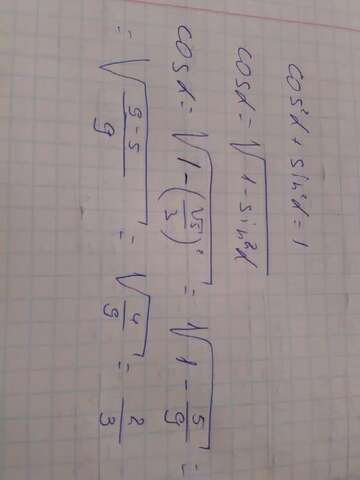 cos²α + sin²α = 1
cosα = √(1 - sin²α)
cosα = √(1 - (√5/3)²) = √(1 - 5/9) =
= √((9-5)/9) = √(4/9) = 2/3